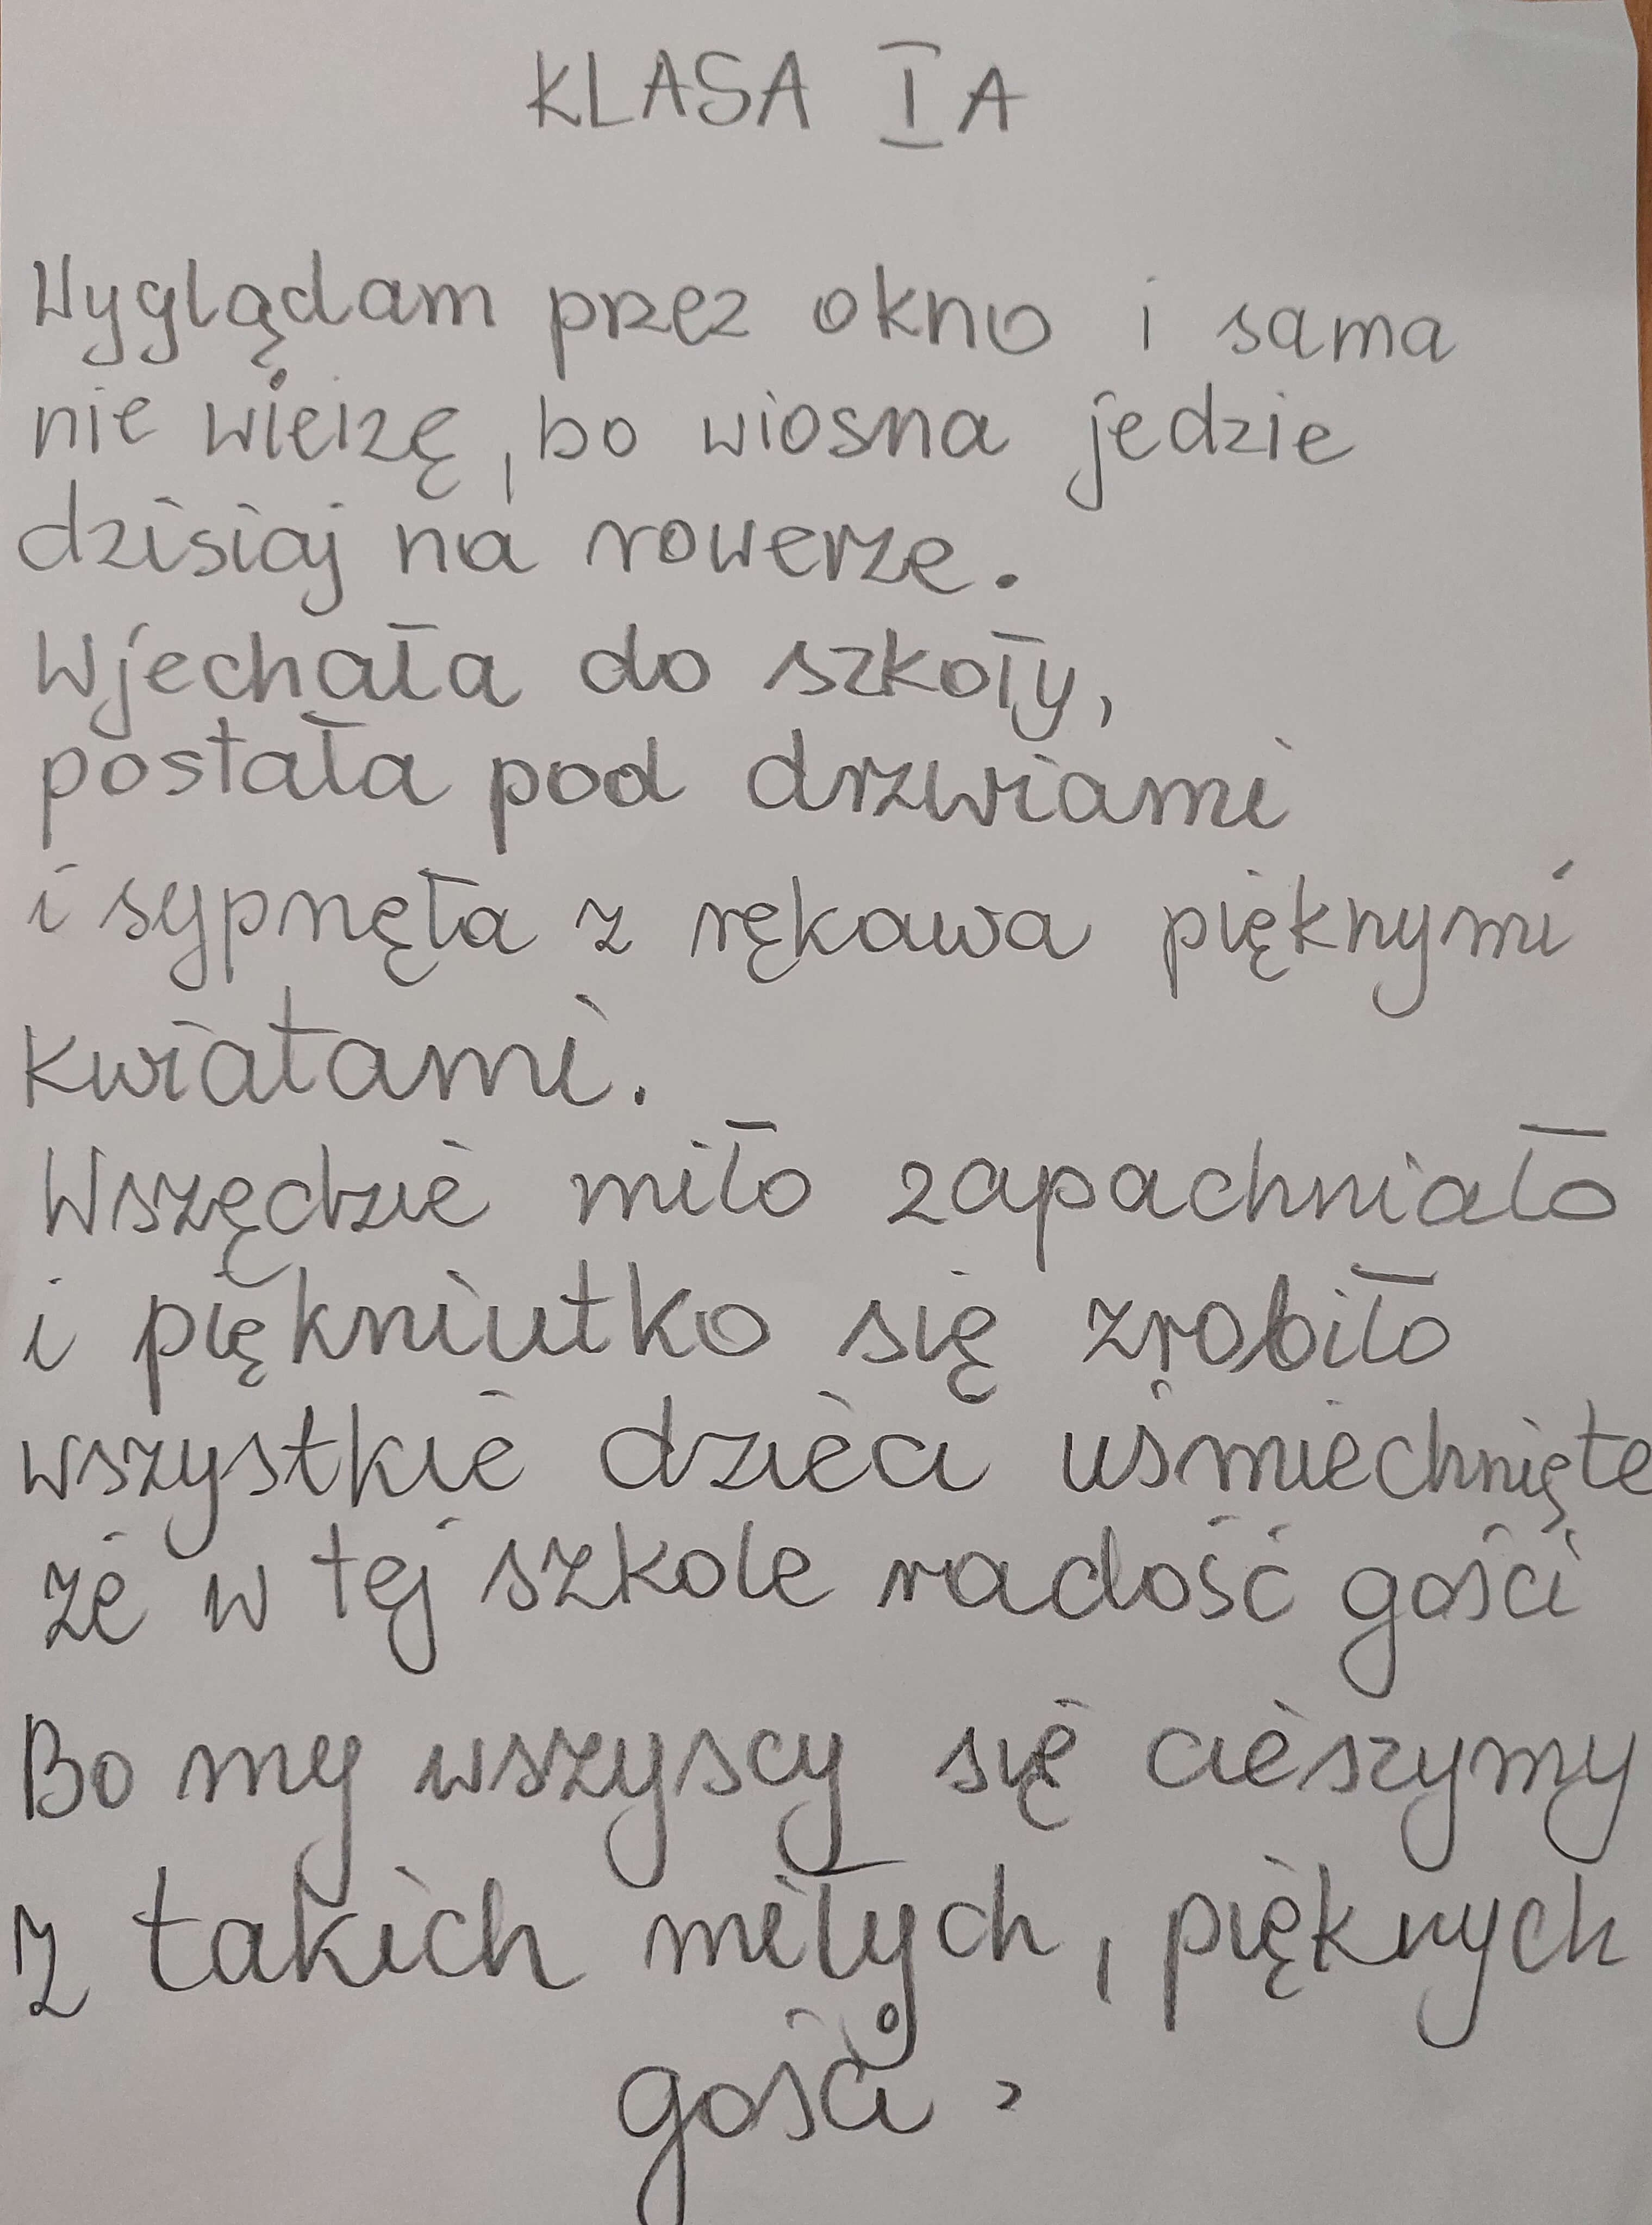 KLASA I A
Wyglądam przez okno i sama
nie wierzę, bo wiosna jedzie
dzisiaj na rowerze.
Wjechała do szkoły,
postała pod drzwiami
i sypnęła z rękawa pięknymi
kwiatami.
Wszędzie miło zapachniało
i piękniutko się zrobiło
wszystkie dzieci uśmiechnięte
że w tej szkole radość gości
Bo my wszyscy się cieszymy
z takich miłych, pięknych
gości.